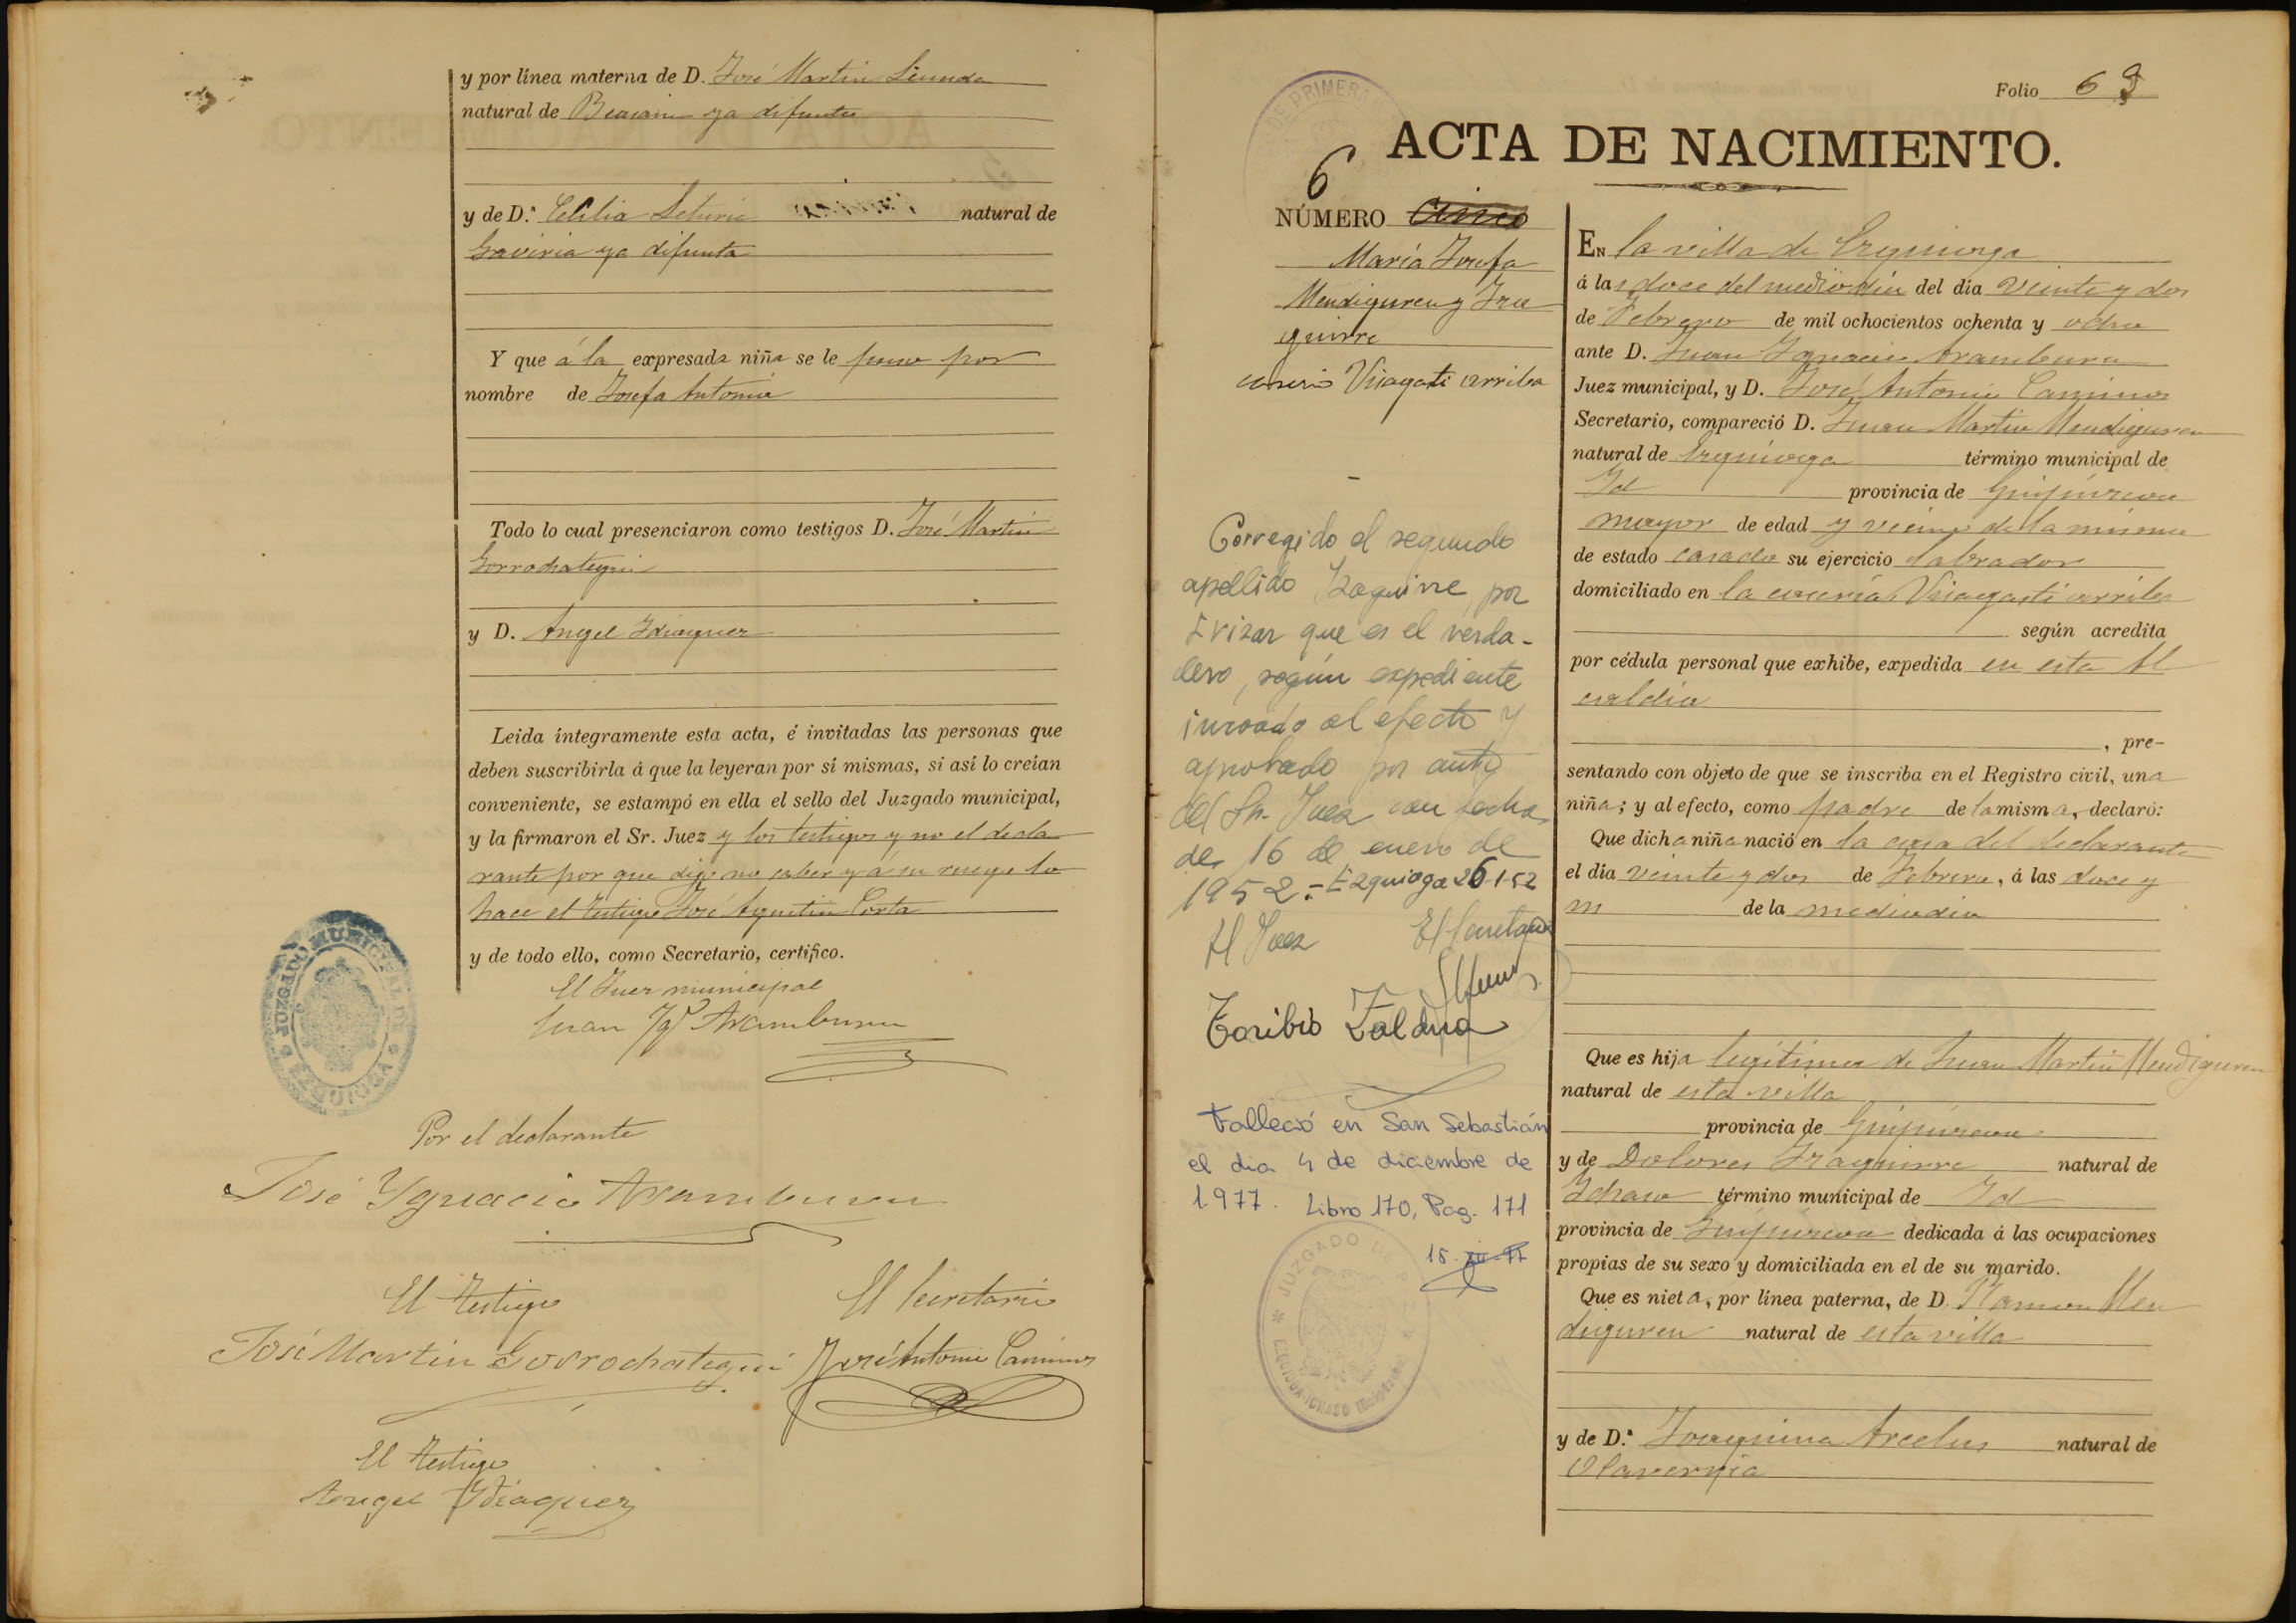 y por línea materna de D. José Martin Liernda
natural de Beasain ya difunto
y de D.ª Cecilia Leturia natural de
Gaviria ya difunta
Y que á la expresada niña se le puso por
nombre de Josefa Antonia
Todo lo cual presenciaron como testigos D. José Martin
Gorrochategui
y D. Angel Idiaquez
Leida íntegramente esta acta, é invitadas las personas que
deben suscribirla á que la leyeran por sí mismas, si así lo creían
conveniente, se estampó en ella el sello del Juzgado municipal,
y la firmaron el Sr. Juez y los testigos y no el decla
rante por que dijo no saber y á su ruego lo
hace el testigo José Agustin Corta
y de todo ello, como Secretario, certifico.
El Juez municipal
Juan Ygº Aramburu
JUZGADO MUNICIPAL DE EZQUIOGA
Por el declarante
José Ygnacio Aramburu
El testigo
José Martin Gorrochategui
El Secretario
José Antonio Caminos
El testigo
Angel Ydiaquez
Folio 69
ACTA DE NACIMIENTO.
6
NÚMERO Cinco
María Josefa
Mendiguren y Iza
guirre
caserio Visagasti arriba
Corregido el segundo
apellido Izaguirre, por
Irizar que es el verda-
dero, según expediente
incoado al efecto y
aprobado por auto
del Sr. Juez con fecha
de 16 de enero de
1952.- Ezquioga 26-1-52
El Juez El Secretario
Toribio Zaldua
Falleció en San Sebastián
el dia 4 de diciembre de
1.977. Libro 170, Pag. 171
15-XII-77
JUZGADO DE
EZQUIOGA-ICHASO (Guipúzcoa)
EN la villa de Ezquioga
á las doce del mediodia del día veinte y dos
de Febrero de mil ochocientos ochenta y ocho
ante D. Juan Ignacio Aramburu
Juez municipal, y D. José Antonio Caminos
Secretario, compareció D. Juan Martin Mendiguren
natural de Ezquioga término municipal de
Id provincia de Guipúzcoa
mayor de edad y vecino de la misma
de estado casado su ejercicio labrador
domiciliado en la casería Visagasti arriba
según acredita
por cédula personal que exhibe, expedida en esta Al
caldía
, pre-
sentando con objeto de que se inscriba en el Registro civil, una
niña; y al efecto, como padre de la misma, declaró:
Que dicha niña nació en la casa del declarante
el día veinte y dos de Febrero, á las doce y
m de la mediodia
Que es hija legítima de Juan Martin Mendiguren
natural de esta villa
provincia de Guipúzcoa
y de Dolores Izaguirre natural de
Ichaso término municipal de Id
provincia de Guipúzcoa dedicada á las ocupaciones
propias de su sexo y domiciliada en el de su marido.
Que es nieta, por línea paterna, de D. Ramon Men
diguren natural de esta villa
y de D.ª Joaquina Arcelus natural de
Olaverria